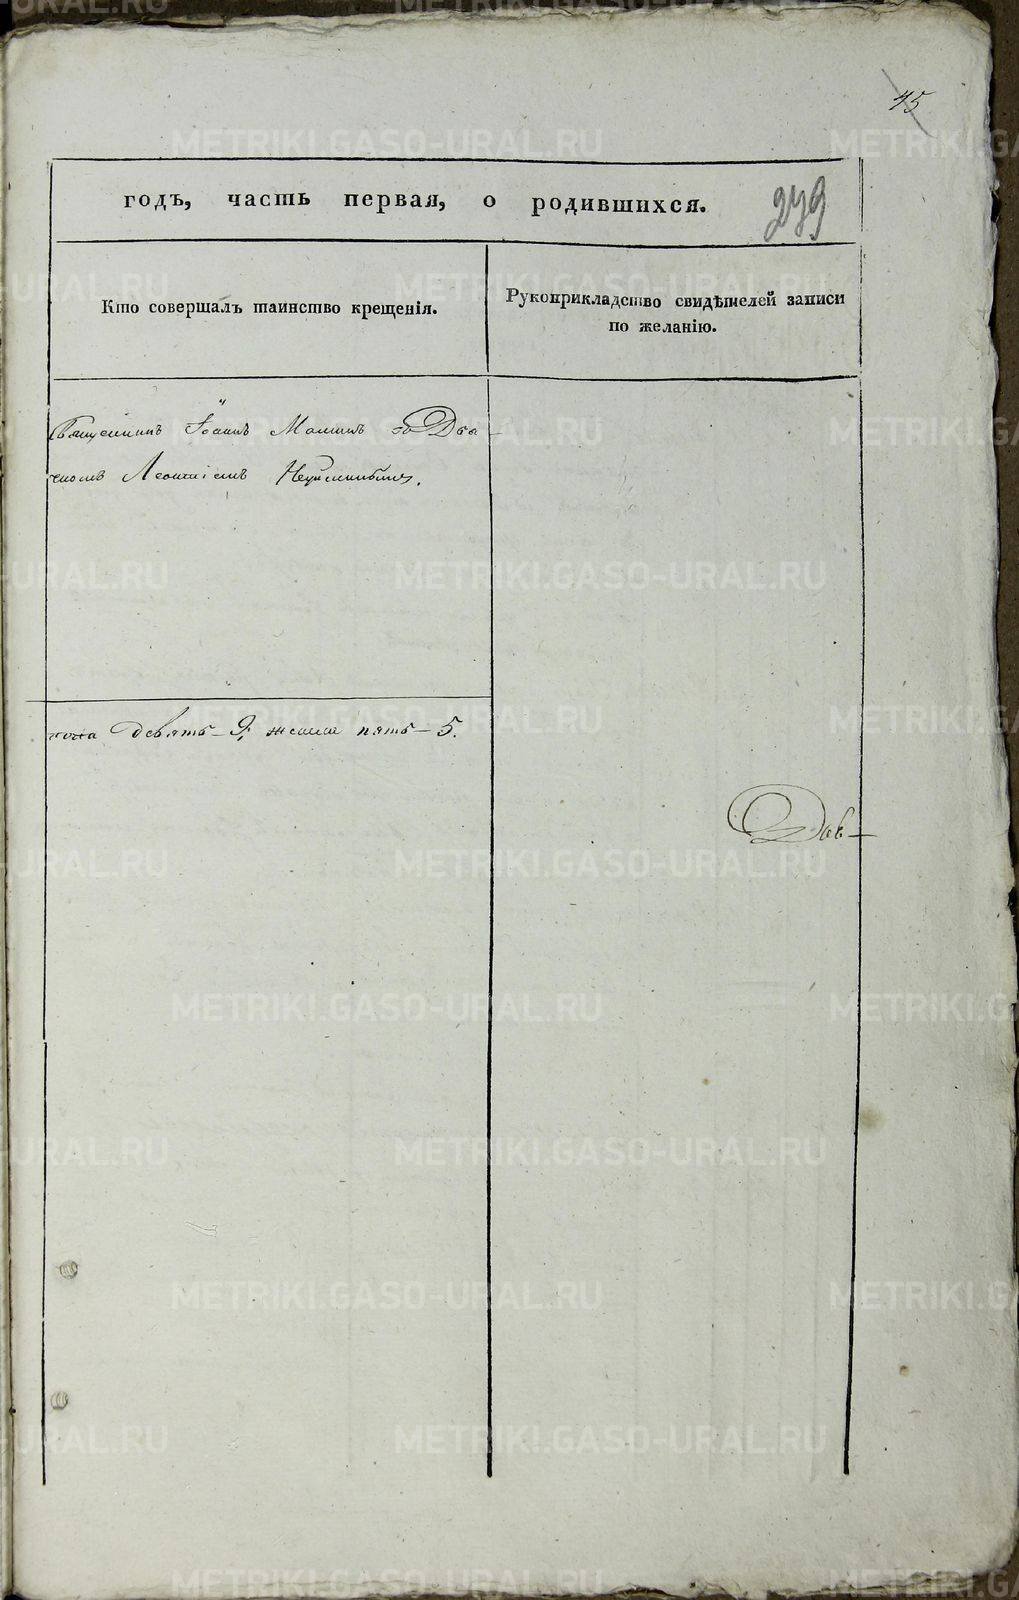 45
годъ, часть первая, о родившихся.
249
Кто совершалъ таинство крещенія.
Рукоприкладство свидѣтелей записи
по желанію.
Священникъ Іоаннъ со Дья-
чкомъ Леонтіемъ
пола девять - 9, женска пять - 5.
METRIKI.GASO-URAL.RU